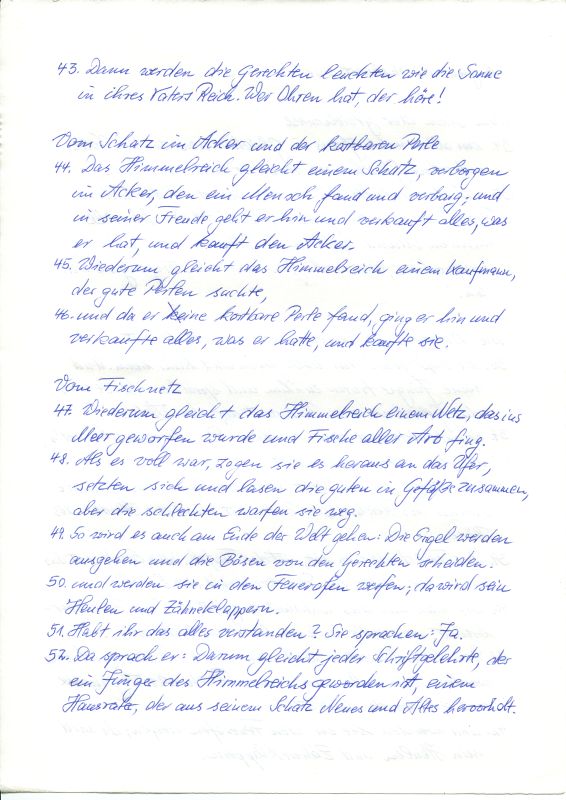 43. Dann werden die Gerechten leuchten wie die Sonne
in ihres Vaters Reich. Wer Ohren hat, der höre!
Vom Schatz im Acker und der kostbaren Perle
44. Das Himmelreich gleicht einem Schatz, verborgen
im Acker, den ein Mensch fand und verbarg; und
in seiner Freude geht er hin und verkauft alles, was
er hat, und kauft den Acker.
45. Wiederum gleicht das Himmelreich einem Kaufmann,
der gute Perlen suchte,
46. und da er eine kostbare Perle fand, ging er hin und
verkaufte alles, was er hatte, und kaufte sie.
Vom Fischnetz
47. Wiederum gleicht das Himmelreich einem Netz, das ins
Meer geworfen wurde und Fische aller Art fing.
48. Als es voll war, zogen sie es heraus an das Ufer,
setzten sich und lasen die guten in Gefäße zusammen,
aber die schlechten warfen sie weg.
49. So wird es auch am Ende der Welt gehen: Die Engel werden
ausgehen und die Bösen von den Gerechten scheiden.
50. und werden sie in den Feuerofen werfen; da wird sein
Heulen und Zähneklappern.
51. Habt ihr das alles verstanden? Sie sprachen: Ja.
52. Da sprach er: Darum gleicht jeder Schriftgelehrte, der
ein Jünger des Himmelreichs geworden ist, einem
Hausvater, der aus seinem Schatz Neues und Altes hervorholt.